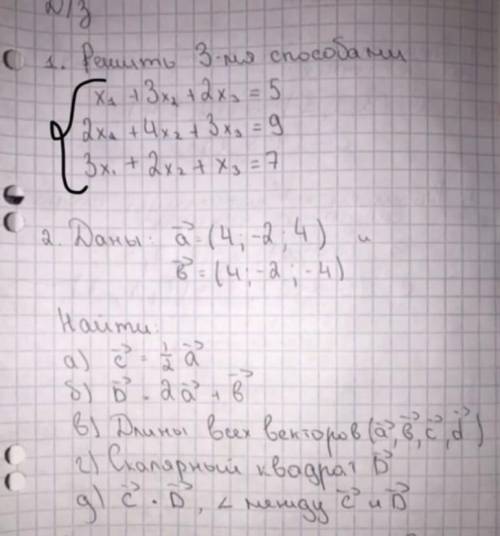 Д/з
1. Решить 3-мя способами
x₁ + 3x₂ + 2x₃ = 5
2x₁ + 4x₂ + 3x₃ = 9
3x₁ + 2x₂ + x₃ = 7
2. Даны: a⃗ = (4; -2; 4) и
b⃗ = (4; -2; -4)
Найти:
а) c⃗ = ½ a⃗
б) D⃗ = 2a⃗ + b⃗
в) Длины всех векторов (a⃗, b⃗, c⃗, d⃗)
г) Скалярный квадрат D⃗
д) c⃗ · D⃗, ∠ между c⃗ и D⃗